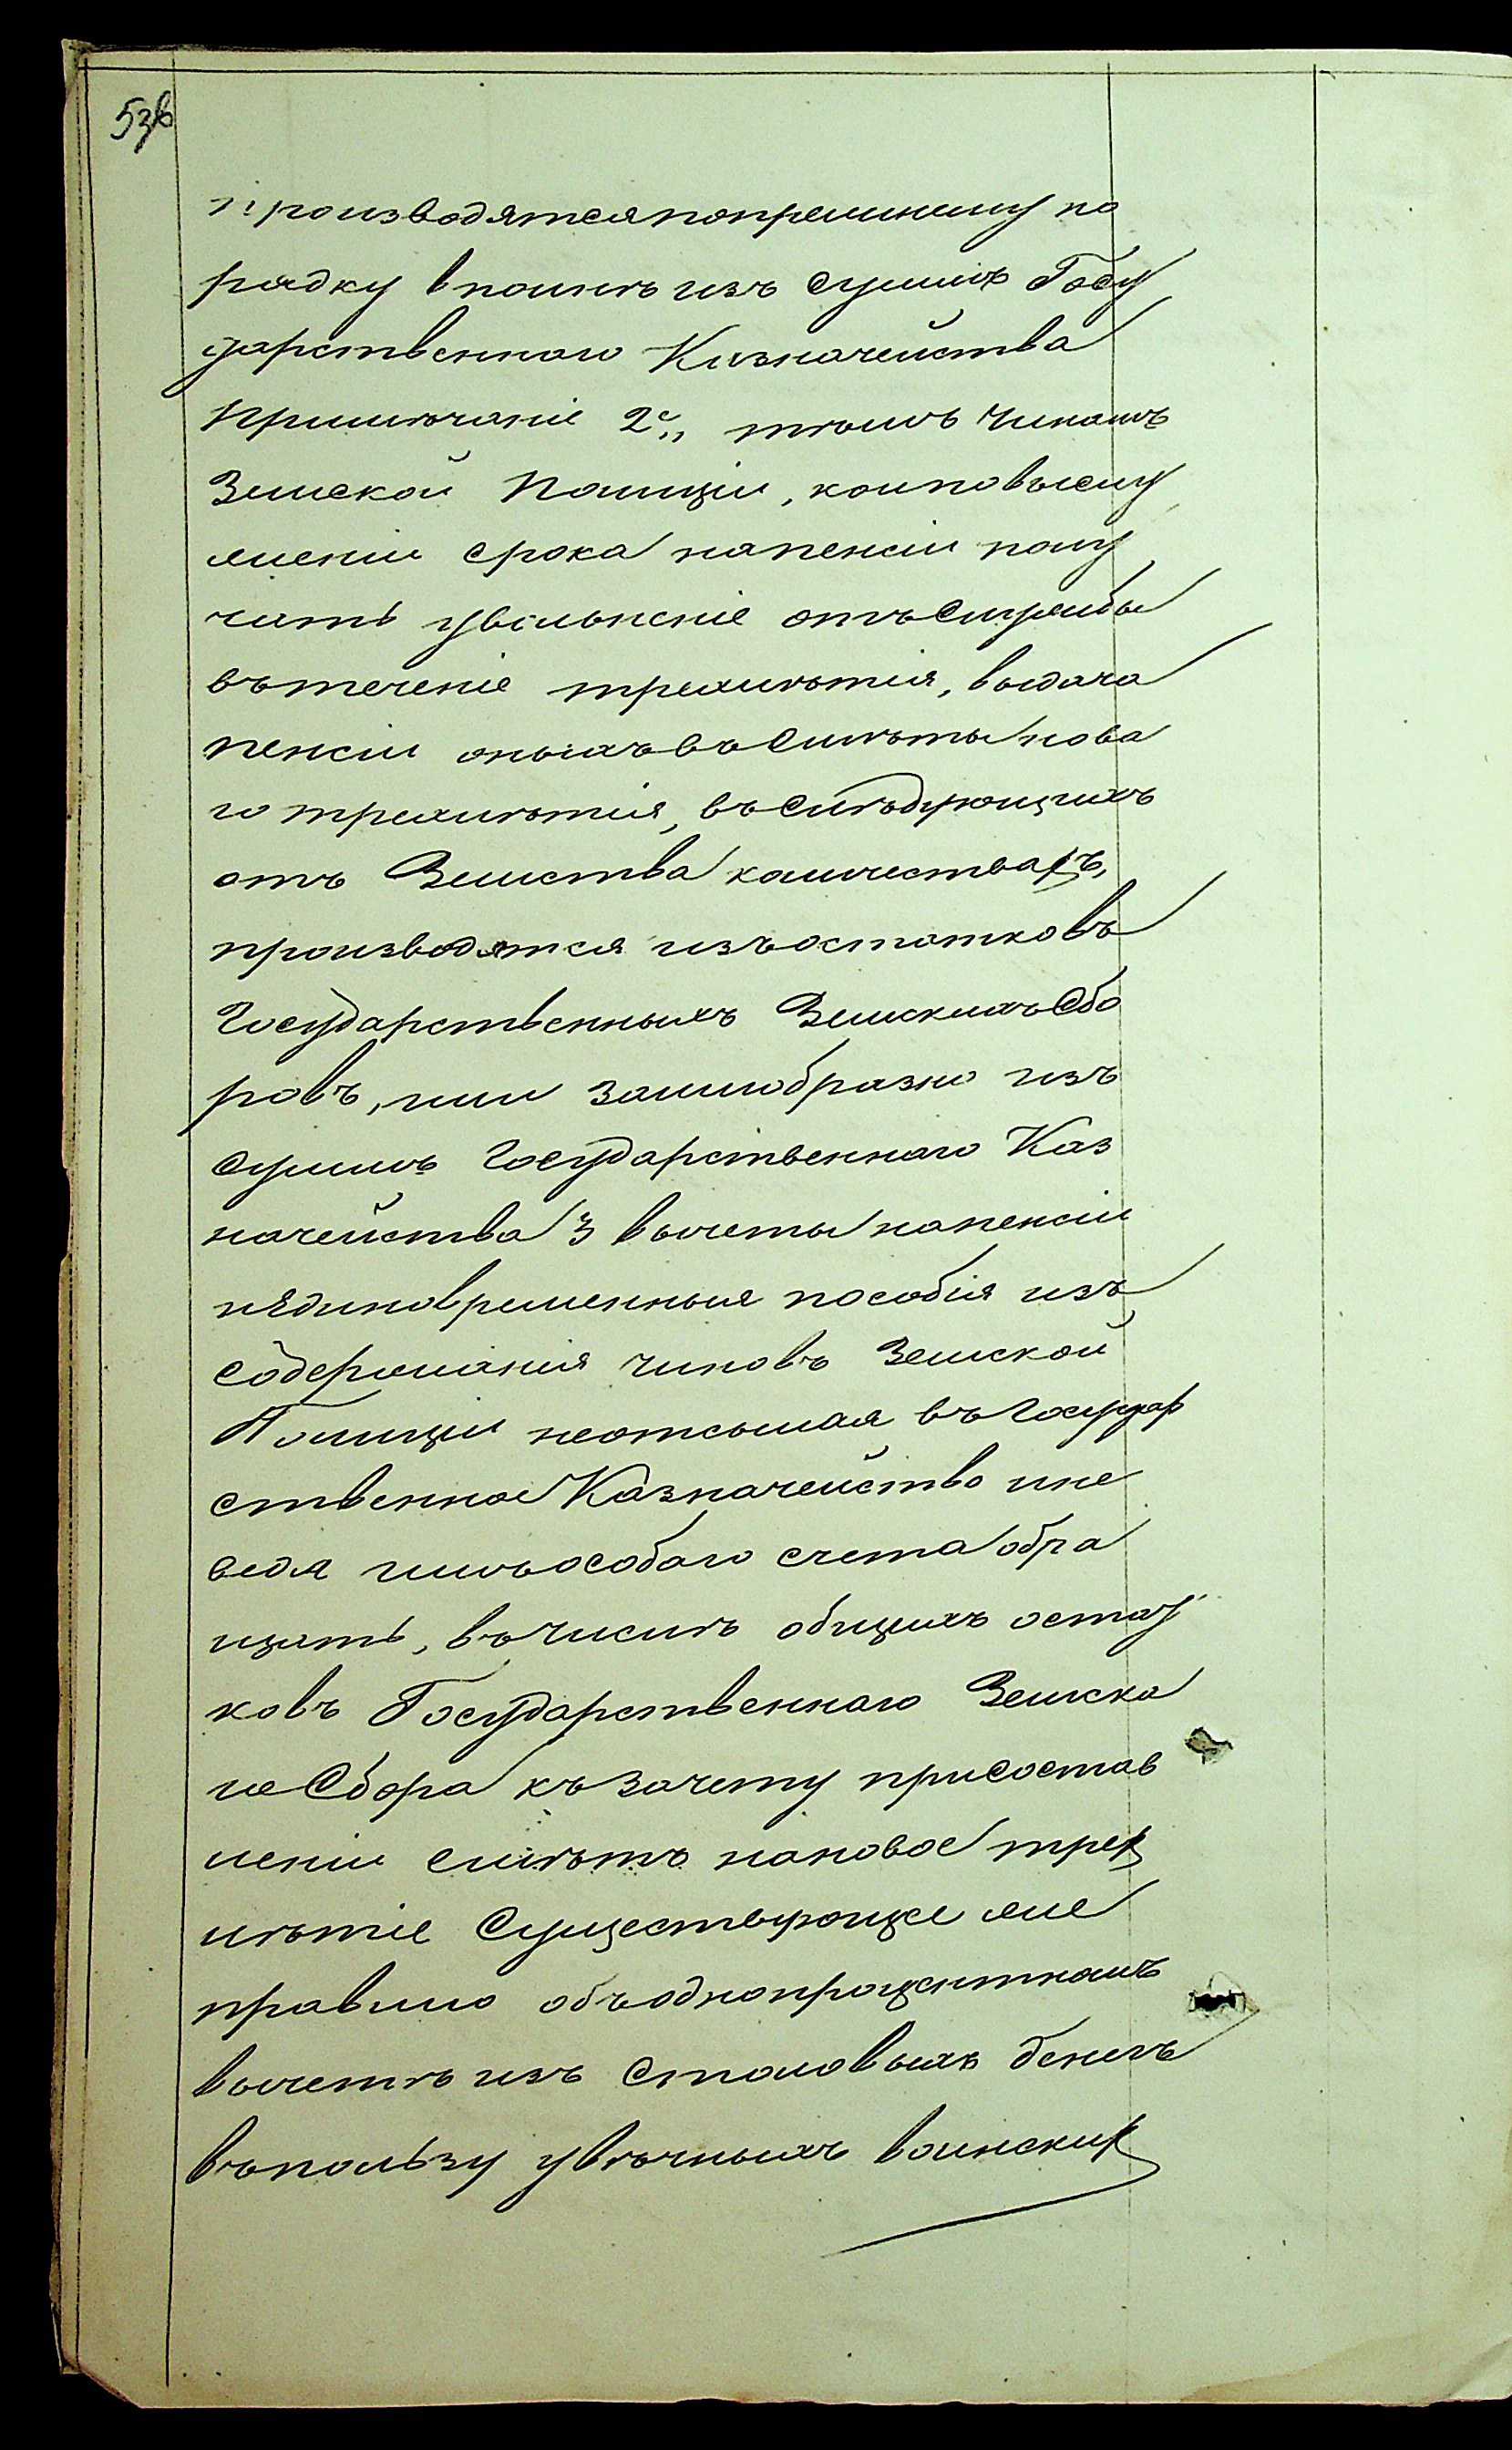 53в
производятся попрежнему по
рядку вполнѣ изъ суммъ Госу
дарственнаго Казначейства
Примѣчаніе 2е„ тѣмъ чинамъ
Земской Полиціи, кои по выслу
женіи срока на пенсіи полу
чатъ увольненіе отъ Службы
въ теченіе трехлѣтія, выдача
пенсіи оныхъ въ Смѣты нова
го трехлѣтія, въ Слѣдующихъ
отъ Земства количествахъ,
производятся изъ остатковъ
Государственныхъ Земскихъ Сбо
ровъ, или заимообразно изъ
Суммъ Государственнаго Каз
начейства 3 вычеты на пенсіи
и единовременныя пособія изъ
содержанія чиновъ Земской
Полиціи неотсылая въ Государ
ственное Казначейство и не
ведя имъ особаго счета обра
щать, въ числѣ общихъ остат
ковъ Государственнаго Земска
го Сбора къ зачету при состав
леніи смѣтъ на новое трех
лѣтіе Существующее же
правило объ однопроцентномъ
вычетѣ изъ Столовыхъ денегъ
въ пользу увѣчныхъ воинских